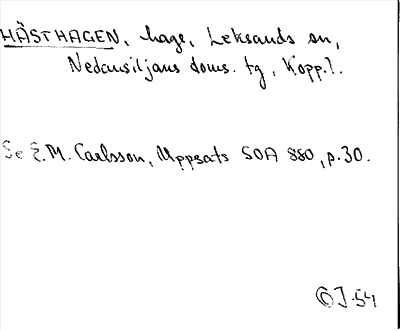 HÄSTHAGEN, hage, Leksands sn,
Nedansiljans doms. tg, Kopp. l.
Se E.M. Carlsson, Uppsats SOA 880, p. 30.
54